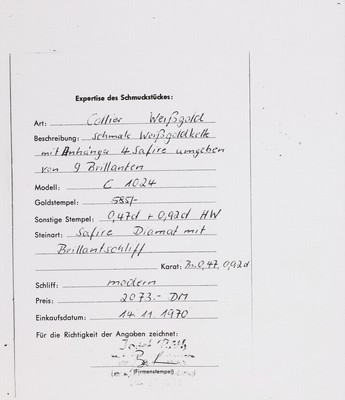 Expertise des Schmuckstückes:
Art: Collier Weißgold
Beschreibung: Schmale Weißgoldkette
mit Anhänga 4 Safire umgeben
von 9 Brillanten
Modell: C 1024
Goldstempel: 585/-
Sonstige Stempel: 0,47d + 0,92d HW
Steinart: Safire Diamat mit
Brillantschliff
Karat: 0,47, 0,92d
Schliff: modern
Preis: 2073.- DM
Einkaufsdatum: 14.11.1970
Für die Richtigkeit der Angaben zeichnet:
(Firmenstempel)